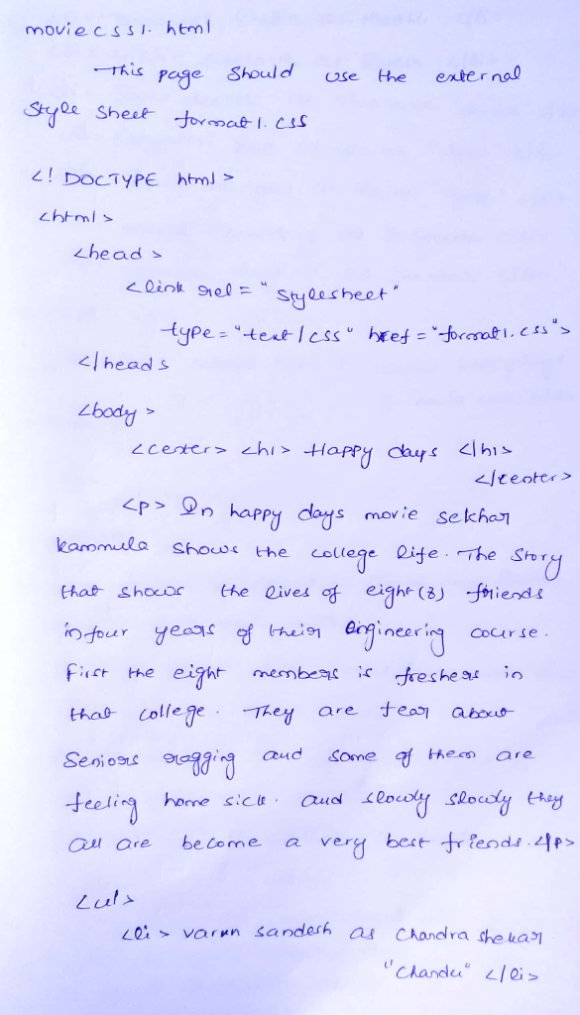 moviecss1.html
This page should use the external
style sheet format1.css
<! DOCTYPE html>
<html>
<head>
<link rel = "stylesheet"
type = "text/css" href = "format1.css">
</head>
<body>
<center> <h1> Happy days </h1>
</center>
<p> In happy days movie sekhar
kammula shows the college life. The story
that shows the lives of eight(8) friends
in four years of their engineering course.
first the eight members is freshers in
that college. They are fear about
seniors ragging and some of them are
feeling home sick. and slowly slowly they
all are become a very best friends.</p>
<ul>
<li> varun sandesh as chandra shekar
"chandu" </li>